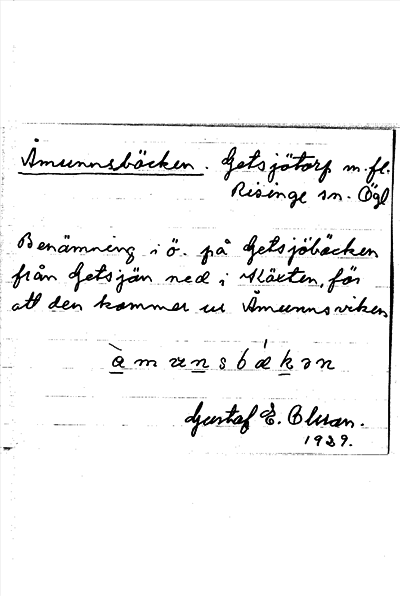 Åmunnsbäcken. Getsjötorp m.fl.
Risinge sn. Ögl
Benämning i ö. på Getsjöbäcken
från Getsjön ned i
att den kommer ur Åmunnsviken
Gustaf E. Olsson.
1929.